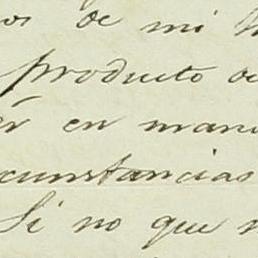 os de mi
producto de
er en man
cunstancias
Si no que